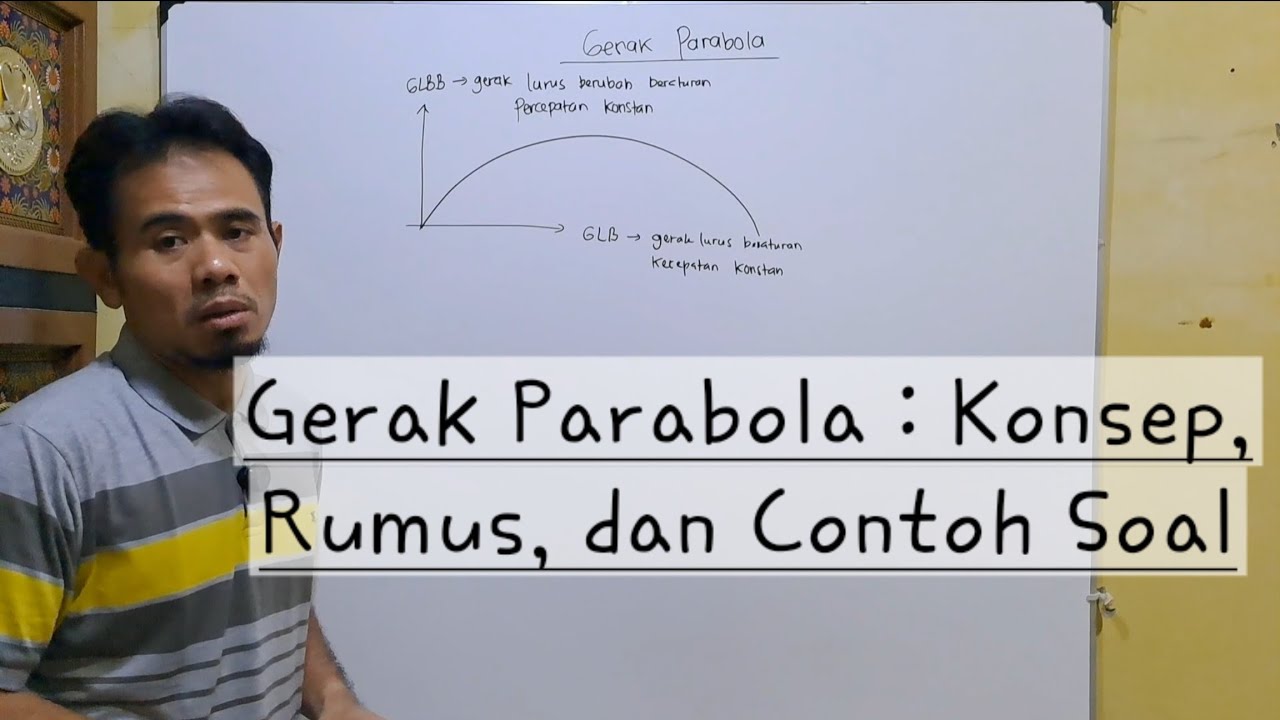 Gerak Parabola
GLBB → gerak lurus berubah beraturan
Percepatan Konstan
GLB → gerak lurus beraturan
Kecepatan Konstan
Gerak Parabola : Konsep,
Rumus, dan Contoh Soal